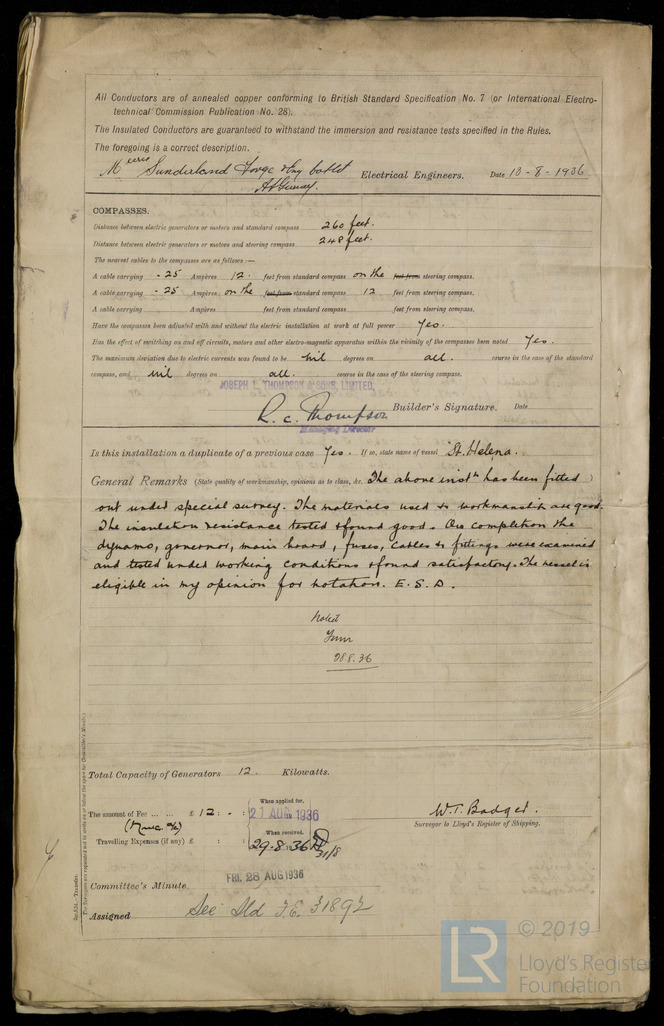 All Conductors are of annealed copper conforming to British Standard Specification No. 7 (or International Electro-
technical Commission Publication No. 28).
The Insulated Conductors are guaranteed to withstand the immersion and resistance tests specified in the Rules.
The foregoing is a correct description.
Messrs Sunderland Forge & Eng Co Ltd Electrical Engineers. Date 13-8-1936
COMPASSES.
Distance between electric generators or motors and standard compass 260 feet.
Distance between electric generators or motors and steering compass 248 feet.
The nearest cables to the compasses are as follows:—
A cable carrying .25 Ampères 12. feet from standard compass on the feet from steering compass.
A cable carrying .25 Ampères on the feet from standard compass 12 feet from steering compass.
A cable carrying Ampères feet from standard compass feet from steering compass.
Have the compasses been adjusted with and without the electric installation at work at full power Yes.
Has the effect of switching on and off circuits, motors and other electro-magnetic apparatus within the vicinity of the compasses been noted Yes.
The maximum deviation due to electric currents was found to be nil degrees on all. course in the case of the standard
compass, and nil degrees on all. course in the case of the steering compass.
JOSEPH L. THOMPSON & SONS, LIMITED,
R. C. Thompson Builder's Signature. Date
Managing Director
Is this installation a duplicate of a previous case Yes. If so, state name of vessel "St. Helena.
General Remarks (State quality of workmanship, opinions as to class, &c. The above instn has been fitted )
out under special survey. The materials used & workmanship are good.
The insulation resistance tested & found good. On completion the
dynamo, governor, main board, fuses, cables & fittings were examined
and tested under working conditions & found satisfactory. The vessel is
eligible in my opinion for notation. E.S.D.
Noted
28.8.36
Total Capacity of Generators 12. Kilowatts.
The amount of Fee ... ... £ 12 : - : When applied for, 27 AUG 1936
Travelling Expenses (if any) £ : : When received, 29.8.36 31/8
W.T. Badger.
Surveyor to Lloyd's Register of Shipping.
Committee's Minute FRI. 28 AUG 1936
Assigned See Sld F.E. 31892
© 2019
LR Lloyd's Register
Foundation